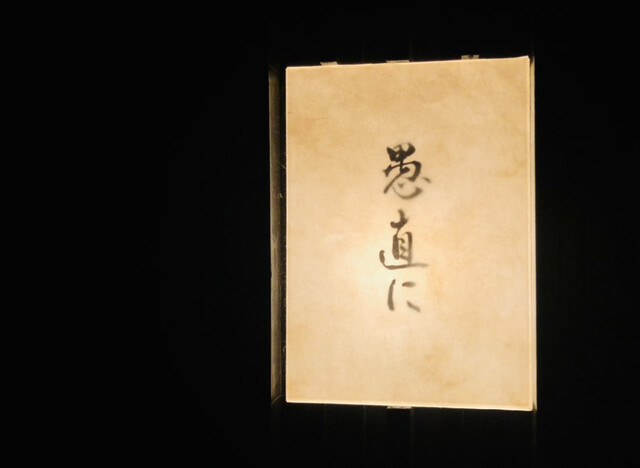 愚直に